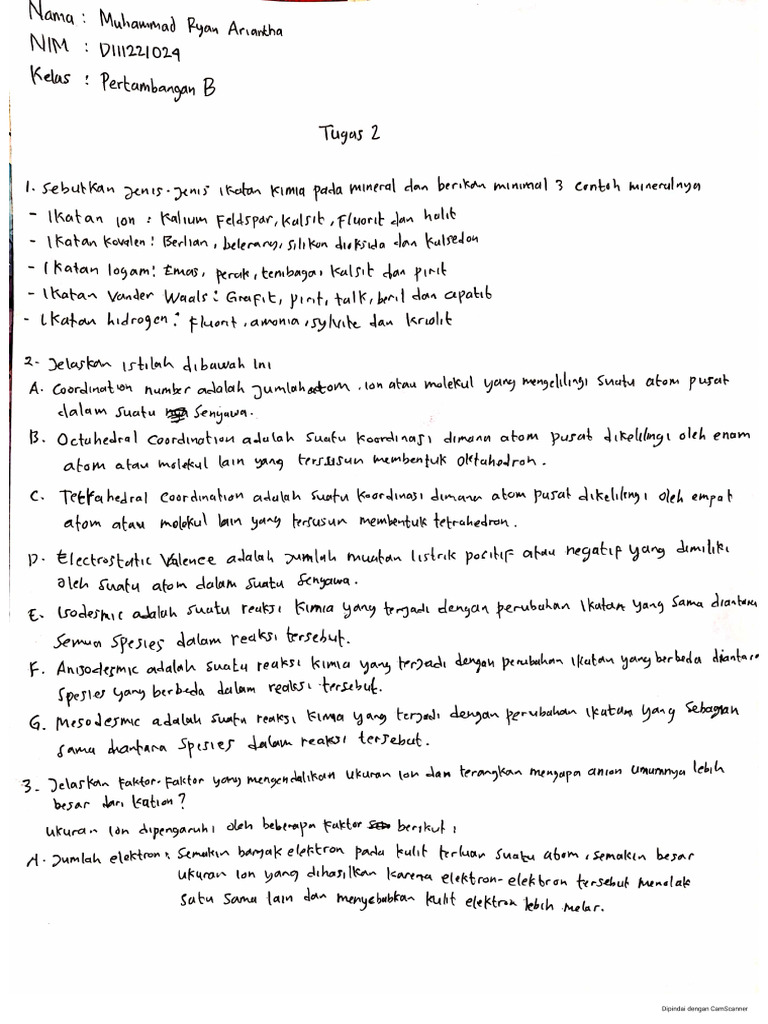 Nama : Muhammad Ryan Ariantha
NIM : D111221024
Kelas : Pertambangan B
Tugas 2
1. Sebutkan jenis-jenis ikatan kimia pada mineral dan berikan minimal 3 contoh mineralnya
- Ikatan ion : Kalium Feldspar, Kalsit, Fluorit dan halit
- Ikatan Kovalen : Berlian, belerang, silikon dioksida dan kalsedon
- Ikatan logam : Emas, perak, tembaga, kalsit dan pirit
- Ikatan Vander Waals : Grafit, pirit, talk, beril dan apatit
- Ikatan hidrogen : Fluorit, amonia, sylvite dan kriolit
2. Jelaskan istilah dibawah ini
A. Coordination number adalah jumlah atom, ion atau molekul yang mengelilingi suatu atom pusat
dalam suatu senyawa.
B. Octahedral Coordination adalah suatu koordinasi dimana atom pusat dikelilingi oleh enam
atom atau molekul lain yang tersusun membentuk oktahedron.
C. Tetrahedral Coordination adalah suatu koordinasi dimana atom pusat dikelilingi oleh empat
atom atau molekul lain yang tersusun membentuk tetrahedron.
D. Electrostatic Valence adalah jumlah muatan listrik positif atau negatif yang dimiliki
oleh suatu atom dalam suatu senyawa.
E. Isodesmic adalah suatu reaksi kimia yang terjadi dengan perubahan ikatan yang sama diantara
semua spesies dalam reaksi tersebut.
F. Anisodermic adalah suatu reaksi kimia yang terjadi dengan perubahan ikatan yang berbeda diantara
spesies yang berbeda dalam reaksi tersebut.
G. Mesodesmic adalah suatu reaksi kimia yang terjadi dengan perubahan ikatan yang sebagian
sama diantara spesies dalam reaksi tersebut.
3. Jelaskan faktor-faktor yang mengendalikan ukuran ion dan terangkan mengapa anion umumnya lebih
besar dari kation?
Ukuran ion dipengaruhi oleh beberapa faktor berikut :
A. Jumlah elektron : Semakin banyak elektron pada kulit terluar suatu atom, semakin besar
ukuran ion yang dihasilkan karena elektron-elektron tersebut menolak
satu sama lain dan menyebabkan kulit elektron lebih melar.
Dipindai dengan CamScanner